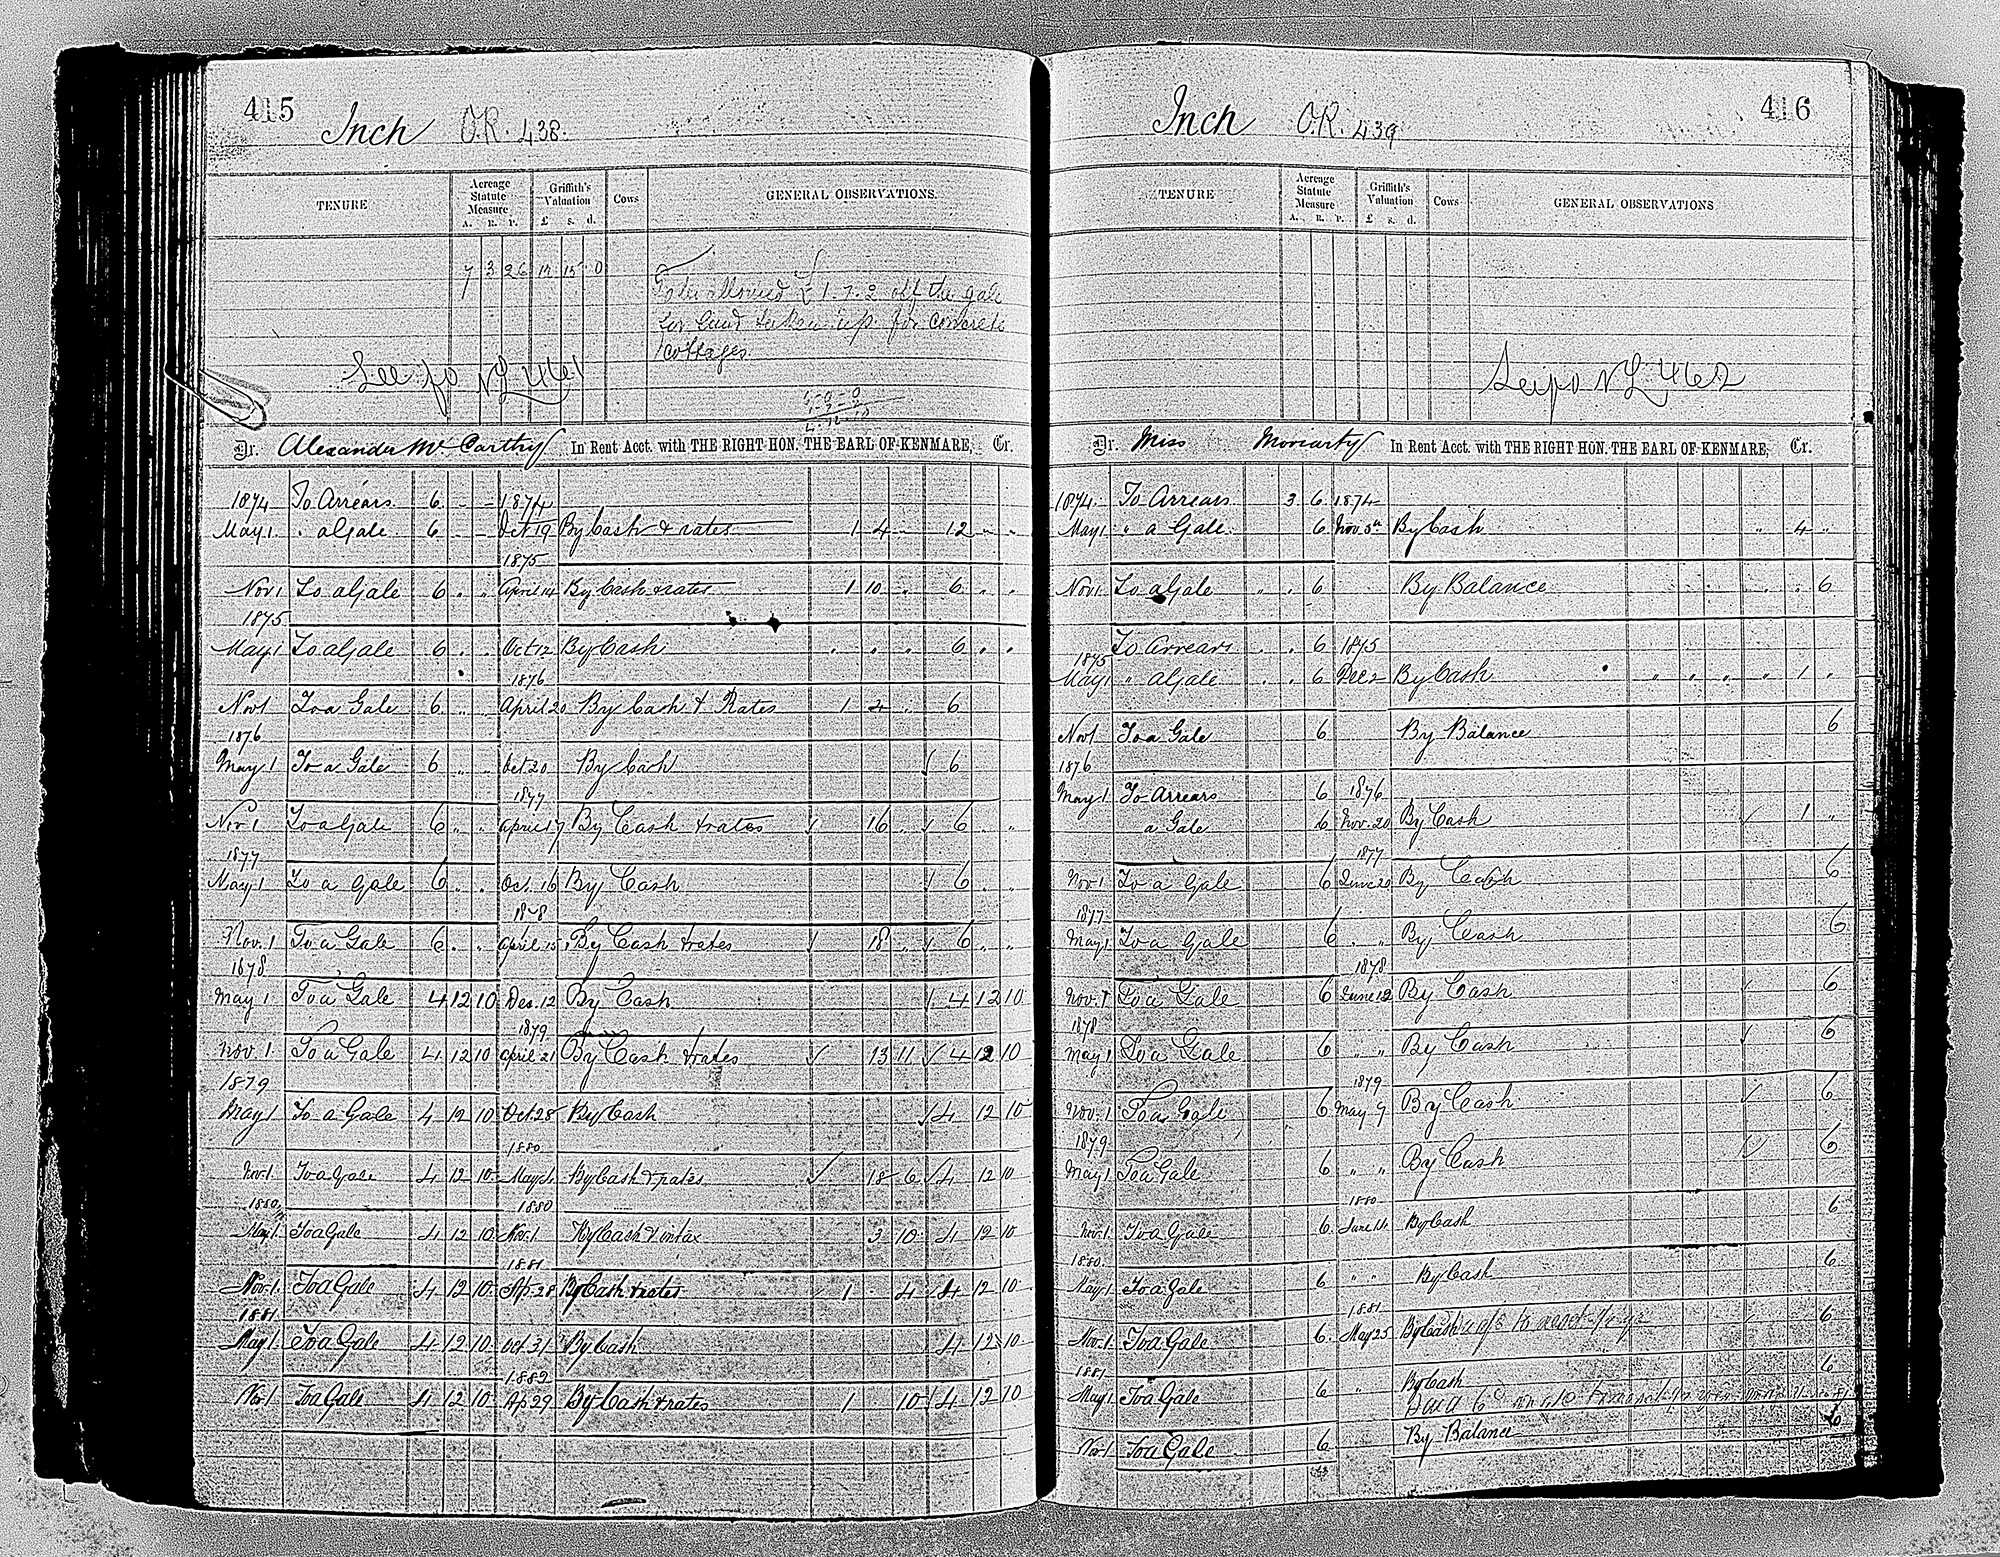 415
Inch O.R. 438.
TENURE
Acreage Statute Measure
A. R. P.
Griffith's Valuation
£ s. d.
Cows
GENERAL OBSERVATIONS.
7 3 26 17 15 0
To be allowed £1.7.2 off the gale
for land taken up for concrete
cottages
See fo NL 461
6-0-0
1-7-2
4-12-10
Dr. Alexander McCarthy In Rent Acct. with THE RIGHT HON. THE EARL OF KENMARE, Cr.
1874 To Arrears 6 - - 1874
May 1. " a Gale 6 - - Oct 19 By Cash & rates 1 4 - 12 " "
1875
Nov 1 To a Gale 6 " " April 14 By Cash & rates 1 10 " 6 " "
1875
May 1 To a Gale 6 " " Oct 12 By Cash " " " 6 " "
1876
Nov 1 To a Gale 6 " " April 20 By Cash & Rates 1 4 " 6
1876
May 1 To a Gale 6 " " Oct 20 By Cash 6
1877
Nov 1 To a Gale 6 " " April 17 By Cash & rates 16 " 6 " "
1877
May 1 To a Gale 6 " " Oct. 16 By Cash 6 " "
1878
Nov. 1 To a Gale 6 " " April 15 By Cash & rates 18 " 6 " "
1878
May 1 To a Gale 4 12 10 Dec. 12 By Cash 4 12 10
1879
Nov. 1 To a Gale 4 12 10 April 21 By Cash & rates 13 11 4 12 10
1879
May 1 To a Gale 4 12 10 Oct. 28 By Cash 4 12 10
1880
Nov. 1 To a Gale 4 12 10 May By Cash & rates 18 6 4 12 10
1880 1880
May 1. To a Gale 4 12 10 Nov. 1 By Cash & 3 10 4 12 10
1881
Nov. 1. To a Gale 4 12 10 Ap. 28 By Cash & rates 1 . 4 4 12 10
1881
May 1. To a Gale 4 12 10 Oct. 31 By Cash 4 12 10
1882
Nov 1 To a Gale 4 12 10 Ap 29 By Cash & rates 1 10 4 12 10
416
Inch O.R. 439
TENURE
Acreage Statute Measure
A. R. P.
Griffith's Valuation
£ s. d.
Cows
GENERAL OBSERVATIONS
See fo NL 462
Dr. Miss Moriarty In Rent Acct. with THE RIGHT HON. THE EARL OF KENMARE, Cr.
1874. To Arrears 3 6 1874
May 1 " a Gale 6 Nov. 5th By Cash " 4 "
Nov 1 To a Gale " " 6 By Balance " " 6
To Arrears " " 6 1875
1875
May 1 " a Gale " " 6 Dec 2 By Cash " " " " 1 "
Nov 1 To a Gale 6 By Balance 6
1876
May 1 To Arrears 6 1876
a Gale 6 Nov. 20 By Cash 1 "
1877
Nov 1 To a Gale 6 June 20 By Cash 6
1877
May 1 To a Gale 6 " " By Cash 6
1878
Nov. 1 To a Gale 6 June 12 By Cash 6
1878
May 1 To a Gale 6 " " By Cash 6
1879
Nov. 1 To a Gale 6 May 9 By Cash 6
1879
May 1 To a Gale 6 " " By Cash 6
1880
Nov. 1. To a Gale 6 June 14 By Cash 6
1880.
May 1 To a Gale 6 " " By Cash 6
1881
Nov. 1 To a Gale 6 May 25 By Cash 6
1881
May 1 To a Gale 6 " By Cash 6
Nov 1 To a Gale 6 By Balance 6